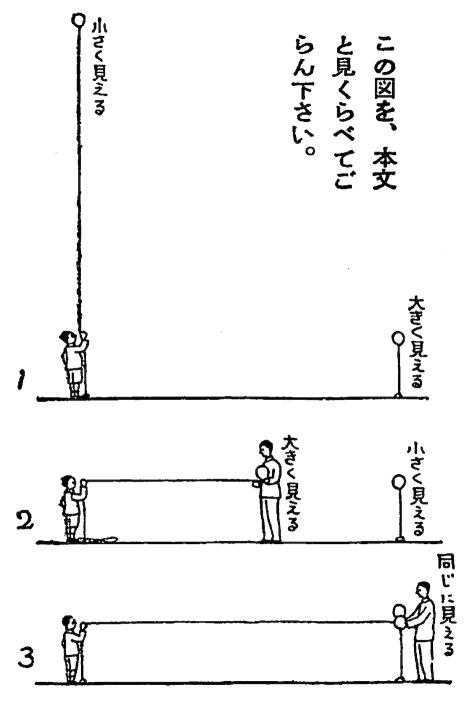 この図を、本文
と見くらべてご
らん下さい。
小さく見える
大きく見える
1
大きく見える
小さく見える
2
同じに見える
3